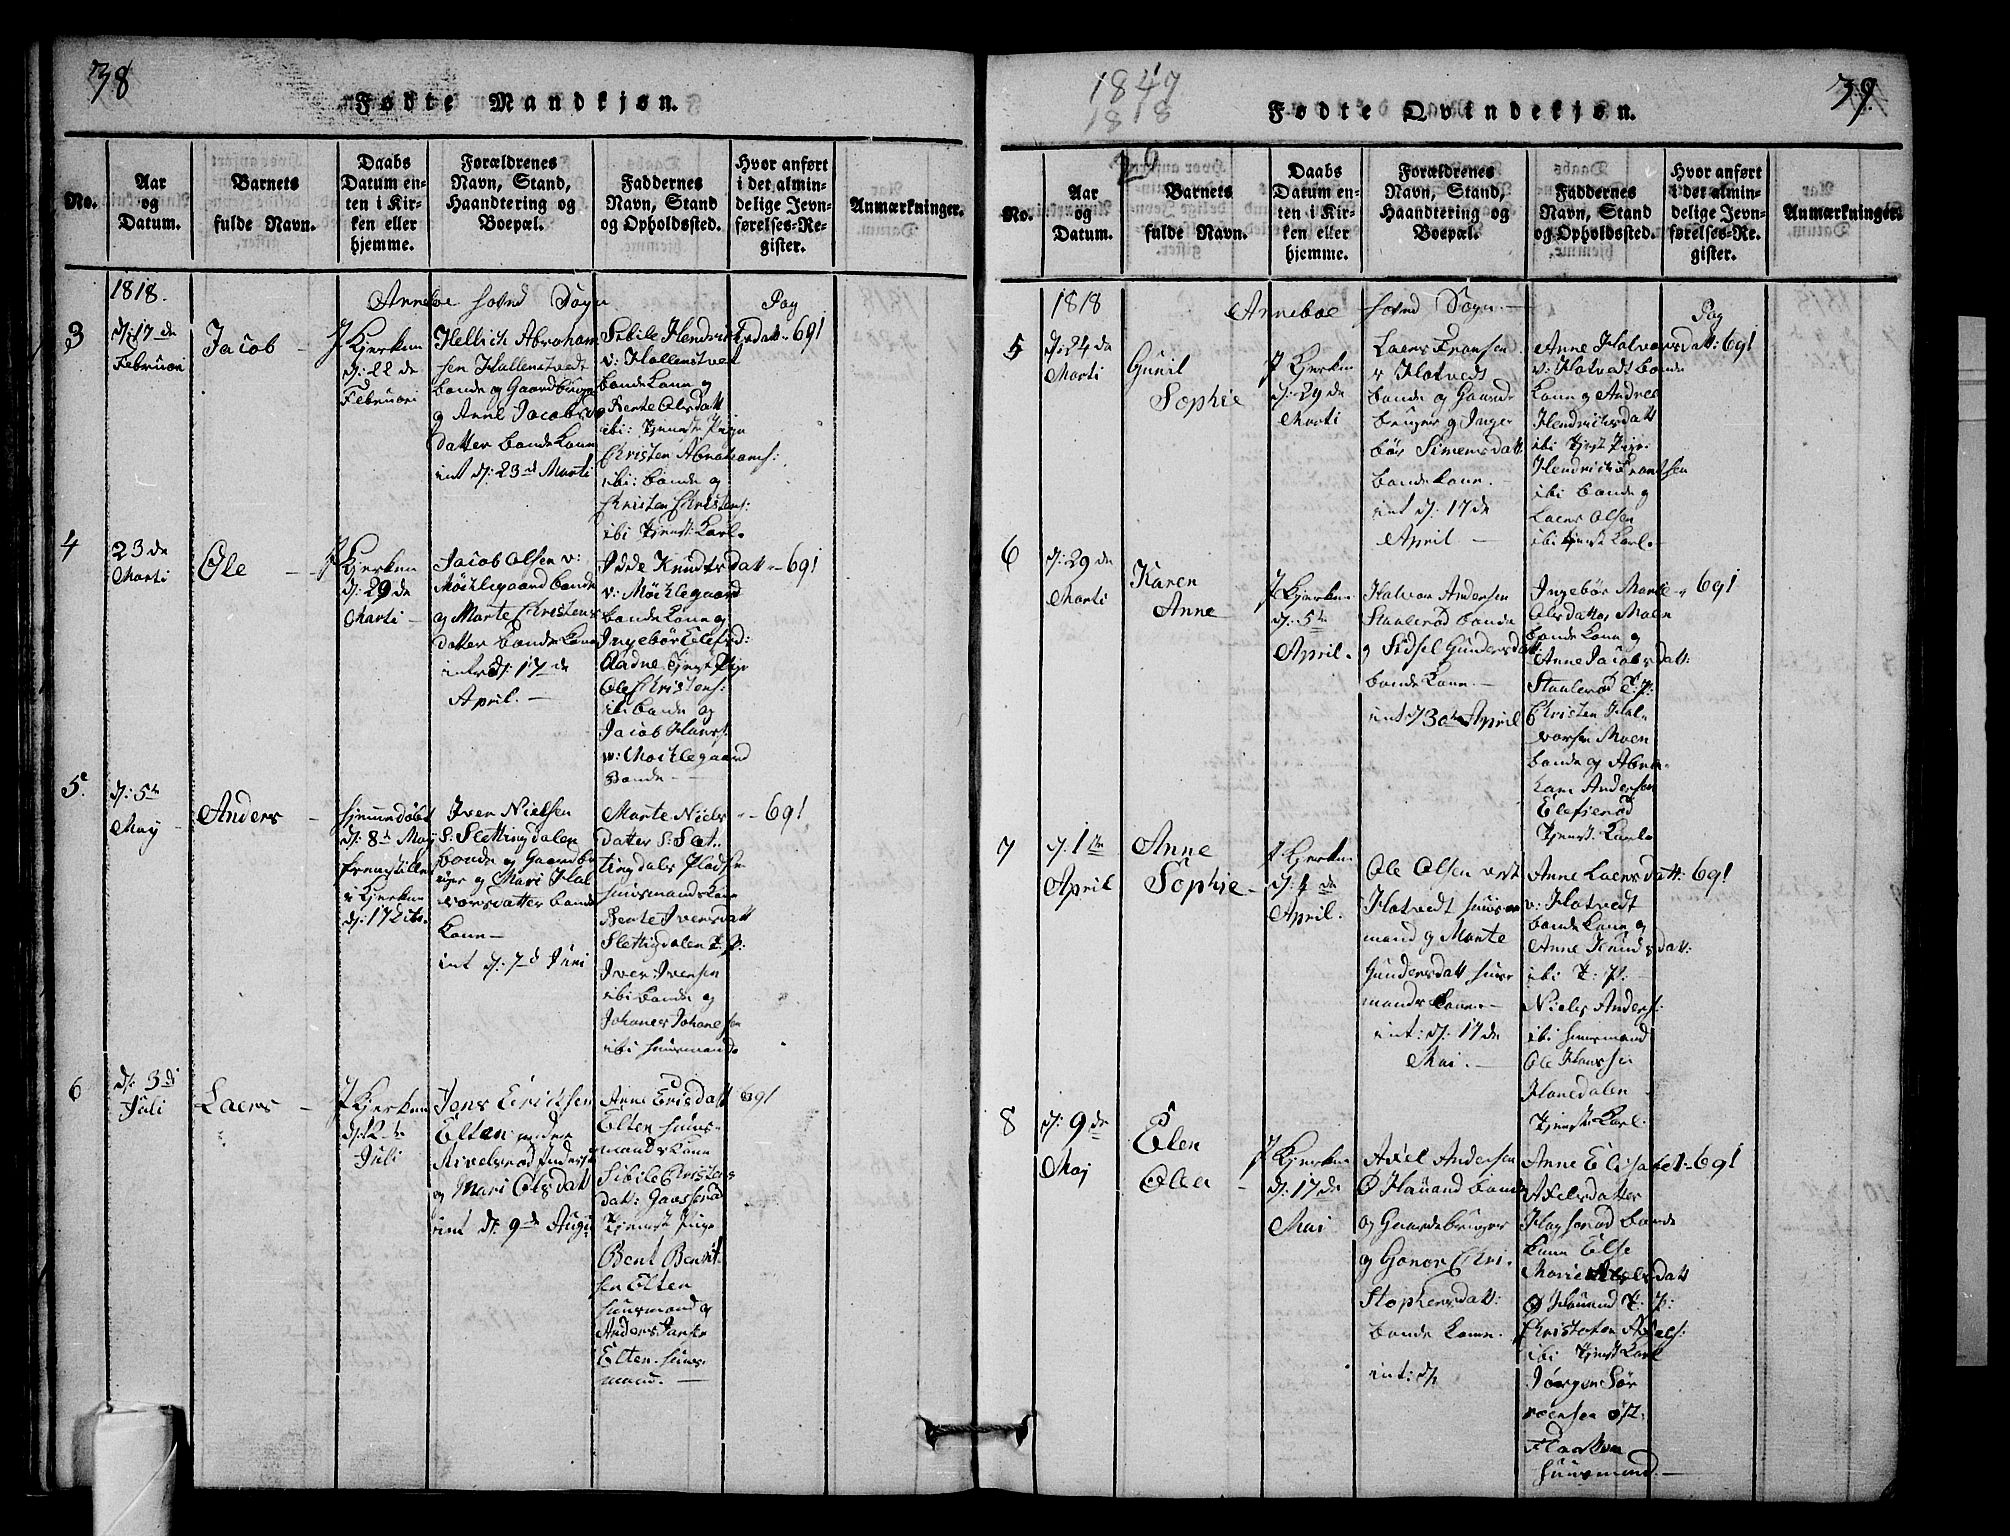 78
Fødte Mandkjøn.
No.
Aar
og
Datum.
Barnets
fulde Navn.
Daabs
Datum en-
ten i Kir-
ken eller
hjemme.
Forældrenes
Navn, Stand,
Haandtering og
Boepæl.
Faddernes
Navn, Stand
og Opholdssted.
Hvor anført
i det almin-
delige Jevn-
førelses-Re-
gister.
Anmærkninger.
1818.
Anneboe Sogn
Pag
3
d: 17 de
Februari
Jacob
J Kjerken
d: 22 de
Februari
Hellrich Abraham
sen Hallenstvedt
bonde og Gaardbruger
og Anne Jacobs
datter bonde Kone
int d: 23 d Marti
Sibile Hendrichsdatt
v: Hallenstvet
bonde Kone og
Bente Olsdatt
ibi: Tjeneste Pige
Christen Abrahams:
ibi: bonde og
Christen Christens:
ibi Tjenst: Karl.
691
4
23 de
Marti
Ole
J Kjerken
d: 29 de
Marti
Jacob Olsen v:
Möchlegaard bonde
og Marte Christens
datter bonde Kone
int d: 17 de
April.
Idde Knudtsdatt
v: Möchlegaard
bonde Kone og
Ingebör Elefsd:
Aadne Tjenst Pige
Ole Christens:
ibi bonde og
Jacob Hans:
v: Möchlegaard
Bonde
691
5.
d: 5 te
May
Anders
hjemmedøbt
d: 8 de May
fremstillet
i Kjerken
d: 17 dito.
Iver Nielsen
S: Slettingdalen
bonde og Gaardbr
uger og Mari Hal
vorsdatter bonde
Kone
int d: 7 d Juni
Marte Niels
datter S: Slet
tingdals Pladsen
huusmands Kone
Bente Iversdatt
Slettigdalen T: P:
Iver Iversen
ibi bonde og
Johanes Johanesen
ibi huusmand
691
6
d: 3 di
Juli
Laers
J Kjerken
d: 12 te
Juli
Jens Ericksen
Elten under
Sivelsrød Anders
og Mari Olsdatt
int d: 9 de Augu
Anne Erisdatt
Elten huus
mands Kone
Sibile Christens
datt: Gaasserød
Tjenest Pige
Bent Bendt
sen Elten
huusmand og
Anders Jansen
Elten huus
mand.
691
1849
1818
39
Fødte Qvindekjøn.
No.
Aar
og
Datum.
Barnets
fulde Navn.
Daabs
Datum en-
ten i Kir-
ken eller
hjemme.
Forældrenes
Navn, Stand,
Haandtering og
Boepæl.
Faddernes
Navn, Stand
og Opholdssted.
Hvor anført
i det almin-
delige Jevn-
førelses-Re-
gister.
Anmærkninger.
1818
Anneboe Sogn
Pag
5
d: 24 de
Marti
Gunil
Sophie
J Kjerken
d: 29 de
Marti
Laers Fransen
v Hotveds
bonde og Gaards
bruger og Inger
bör Simensdatt
bonde Kone.
int d: 17 de
April.
Anne Halvorsdatt:
v: Hotveds bonde
Kone og Andrea
Hendrichsdatt
ibi Tjenst Pige
Hendrich Frantsen
ibi bonde og
Laers Olsen
ibi tjenst Karl.
691
6
d: 29 de
Marti
Karen
Anne
J Kjerken
d: 5 te
April.
Halvor Andersen
Staalerød bonde
og Sidsel Gundersdatt
bonde Kone.
int d 30 te April
Ingebör Marie
Olsdatter Moen
bonde Kone og
Anne Jacobsdatt:
Staalerød T: P:
Christen Hal
vorsen Moen
bonde og Abra
ham Andersen
Elefsrød
Tjenst: Karl
691
7
d: 1 te
April
Anne
Sophie
J Kjerken
d: 4 de
April.
Ole Olsen vest
Hotvedt huus
mand og Marte
Gundersdatt huus
mands Kone.
int: d: 17 de
Mai.
Anne Laersdatt:
v: Hotvedt
bonde Kone og
Anne Knudsdatt:
ibi T: P:
Niels Anders:
ibi huusmand
Ole Hansen
Hanedalen
Tjenst: Karl.
691
8
d: 9 de
Maj
Elen
Olea
J Kjerken
d: 17 de
Mai
Axel Andersen
Ø Hauand bonde
og Gaardsbruger
og Gonor Chri
Stophersdatt:
bonde Kone.
int: d:
Anne Elisabet
Axelsdatter
Hogsrød bonde
Kone Else
Marie Axelsdatt
Ø Hauand T: P:
Christofer Axels:
ibi Tjenst Karl
Jørgen Sör
rensen øst:
huusmand.
691